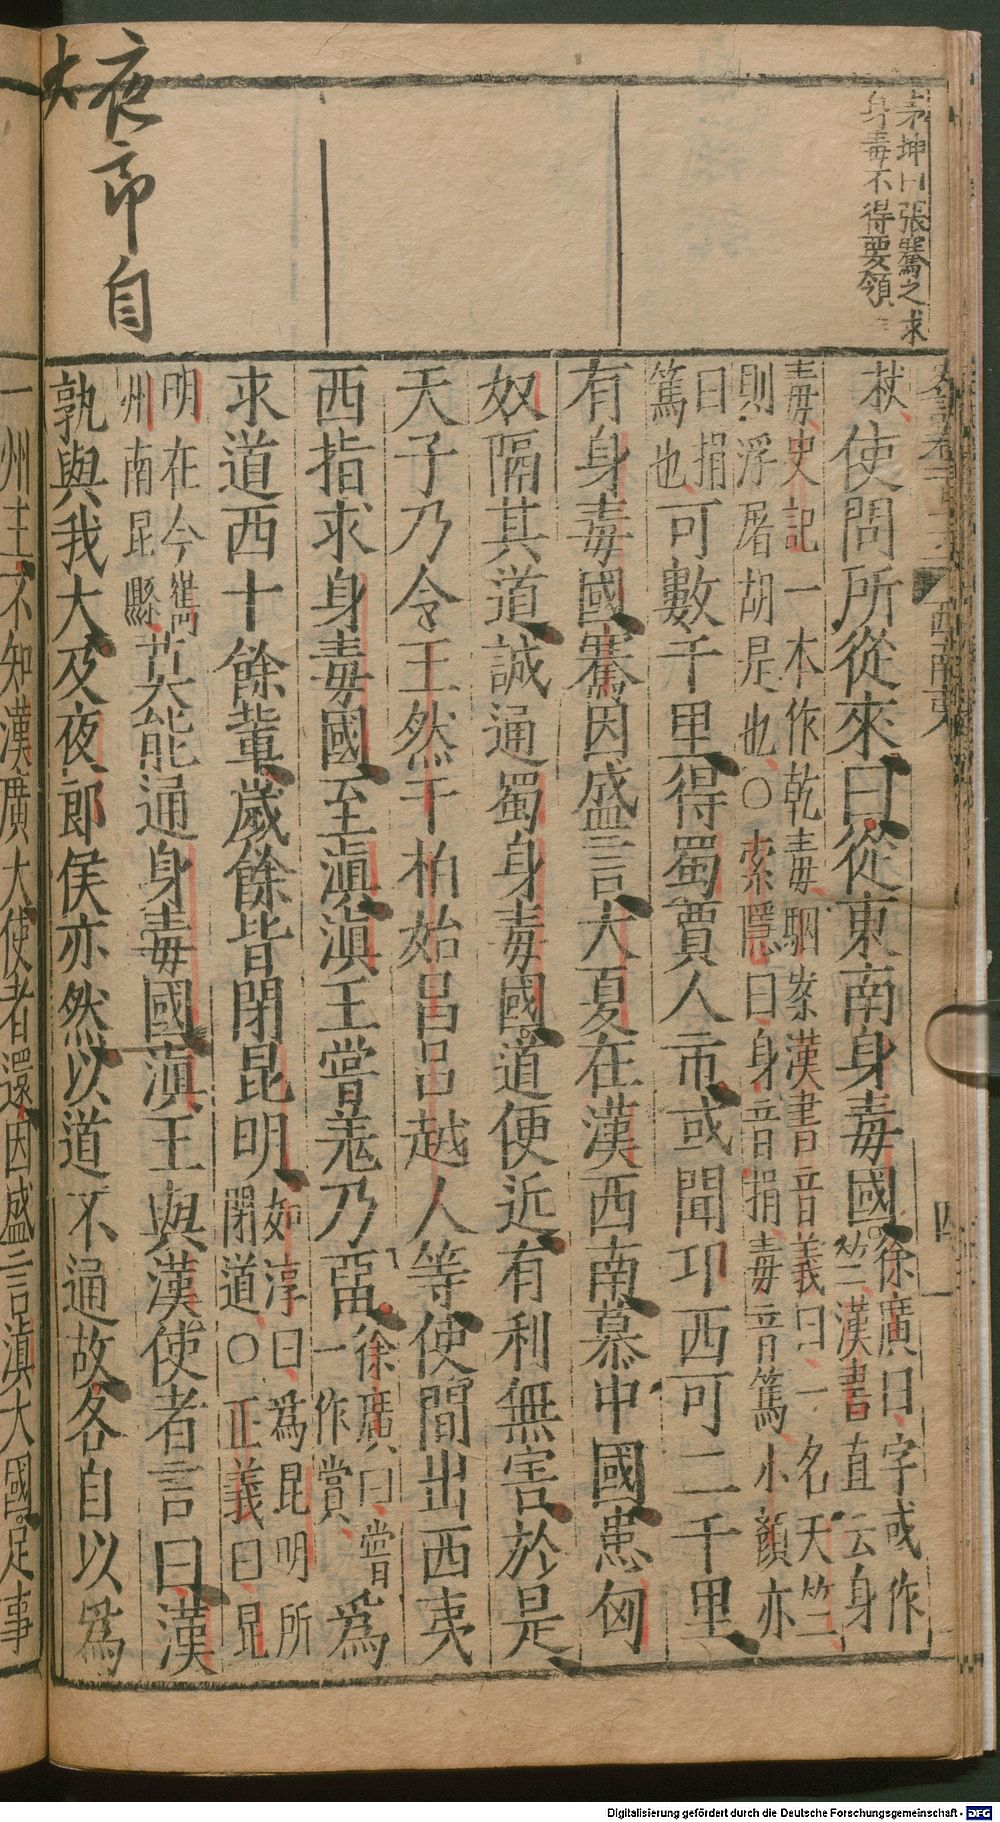 茅坤曰張騫之求
身毒不得要領
夜帝自
大
西南夷
四
杖使問所從來曰從東南身毒國徐廣曰字或作
竺漢書直云身
毒史記一本作乾毒駰案漢書音義曰一名天竺
則浮屠胡是也○索隱曰身音捐毒音篤小顏亦
曰捐
篤也可數千里得蜀賈人市或聞邛西可二千里
有身毒國騫因盛言大夏在漢西南慕中國患匈
奴隔其道誠通蜀身毒國道便近有利無害於是
天子乃令王然于柏始昌呂越人等使間出西夷
西指求身毒國至滇滇王嘗羌乃畱徐廣曰嘗
一作賞爲
求道西十餘輩歲餘皆閉昆明如淳曰爲昆明所
閉道○正義曰昆
明在今嶲
州南昆縣莫能通身毒國滇王與漢使者言曰漢
孰與我大及夜郎侯亦然以道不通故各自以爲
一州主不知漢廣大使者還因盛言滇大國足事
Digitalisierung gefördert durch die Deutsche Forschungsgemeinschaft - DFG